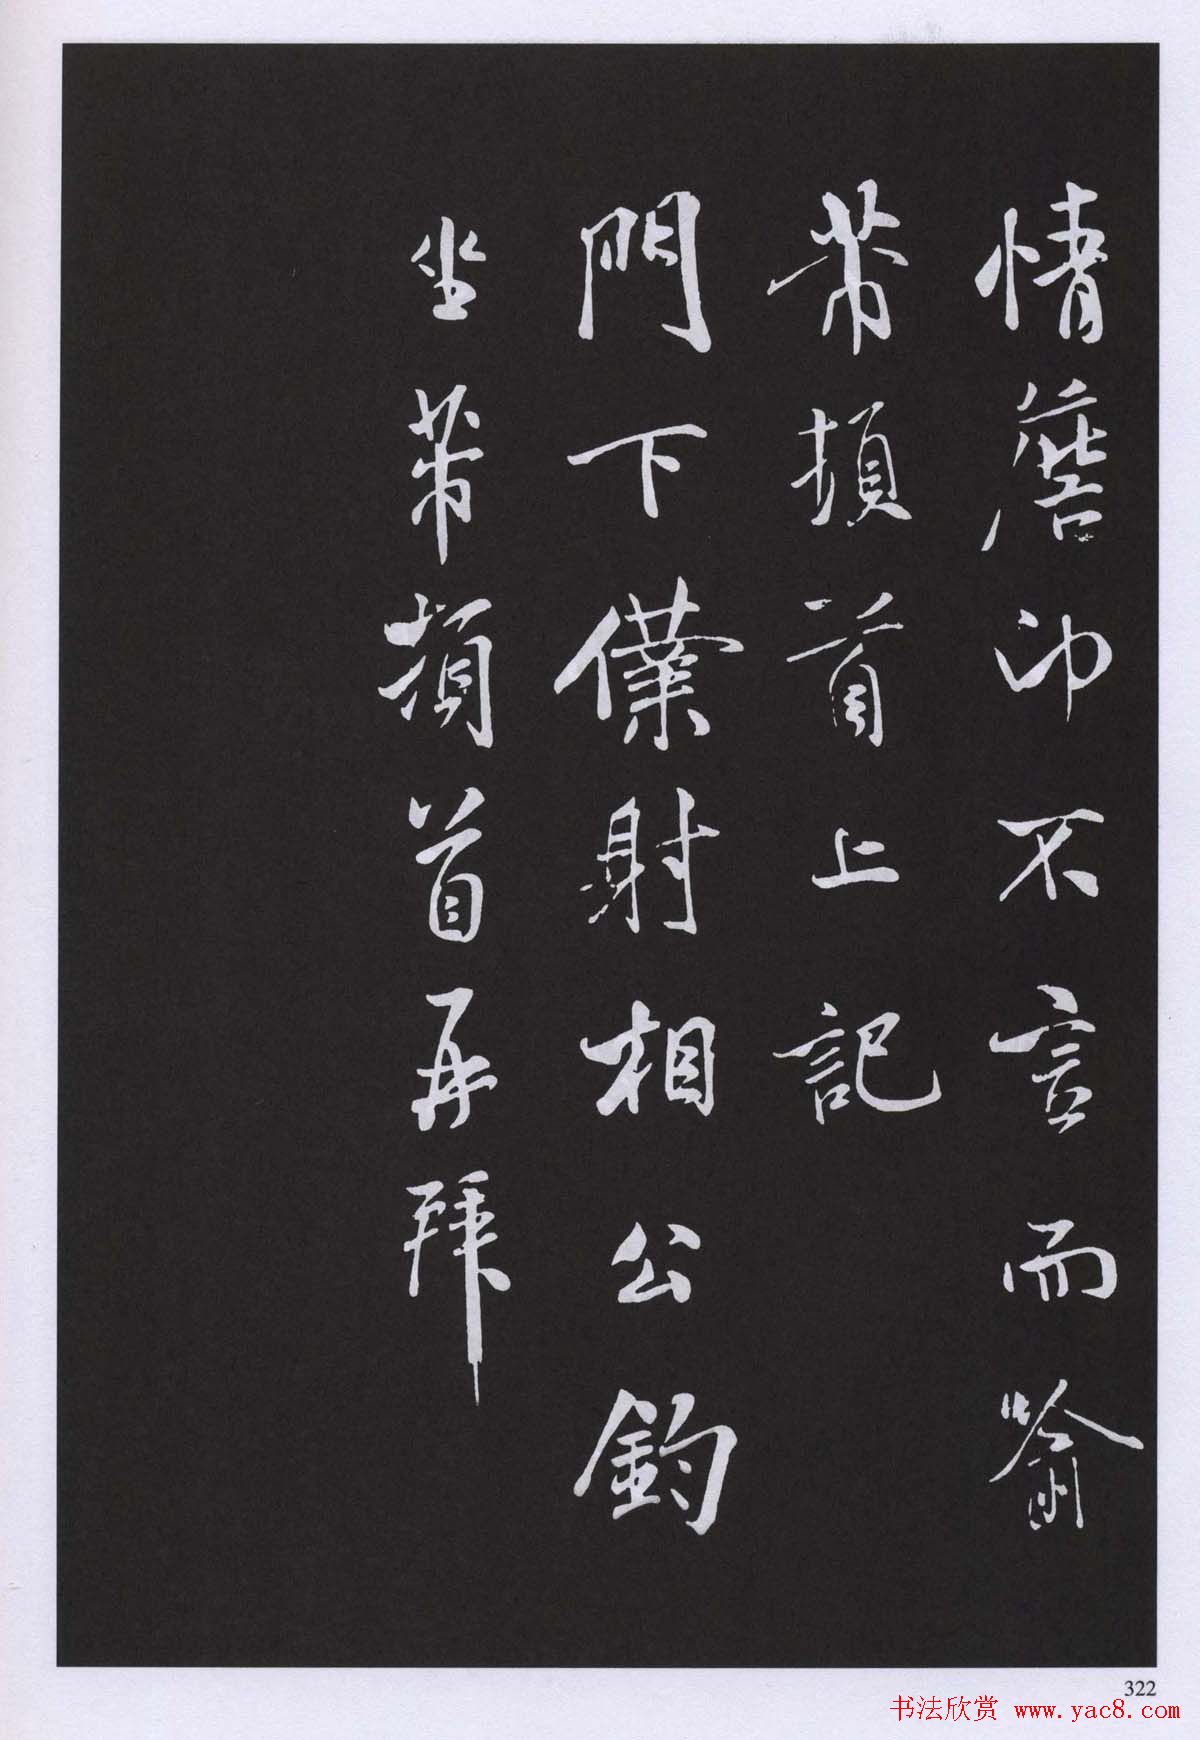 情詹卬不言而喻
芾頓首上記
門下僕射相公鈞
坐芾頓首再拜
322
书法欣赏 www.yac8.com